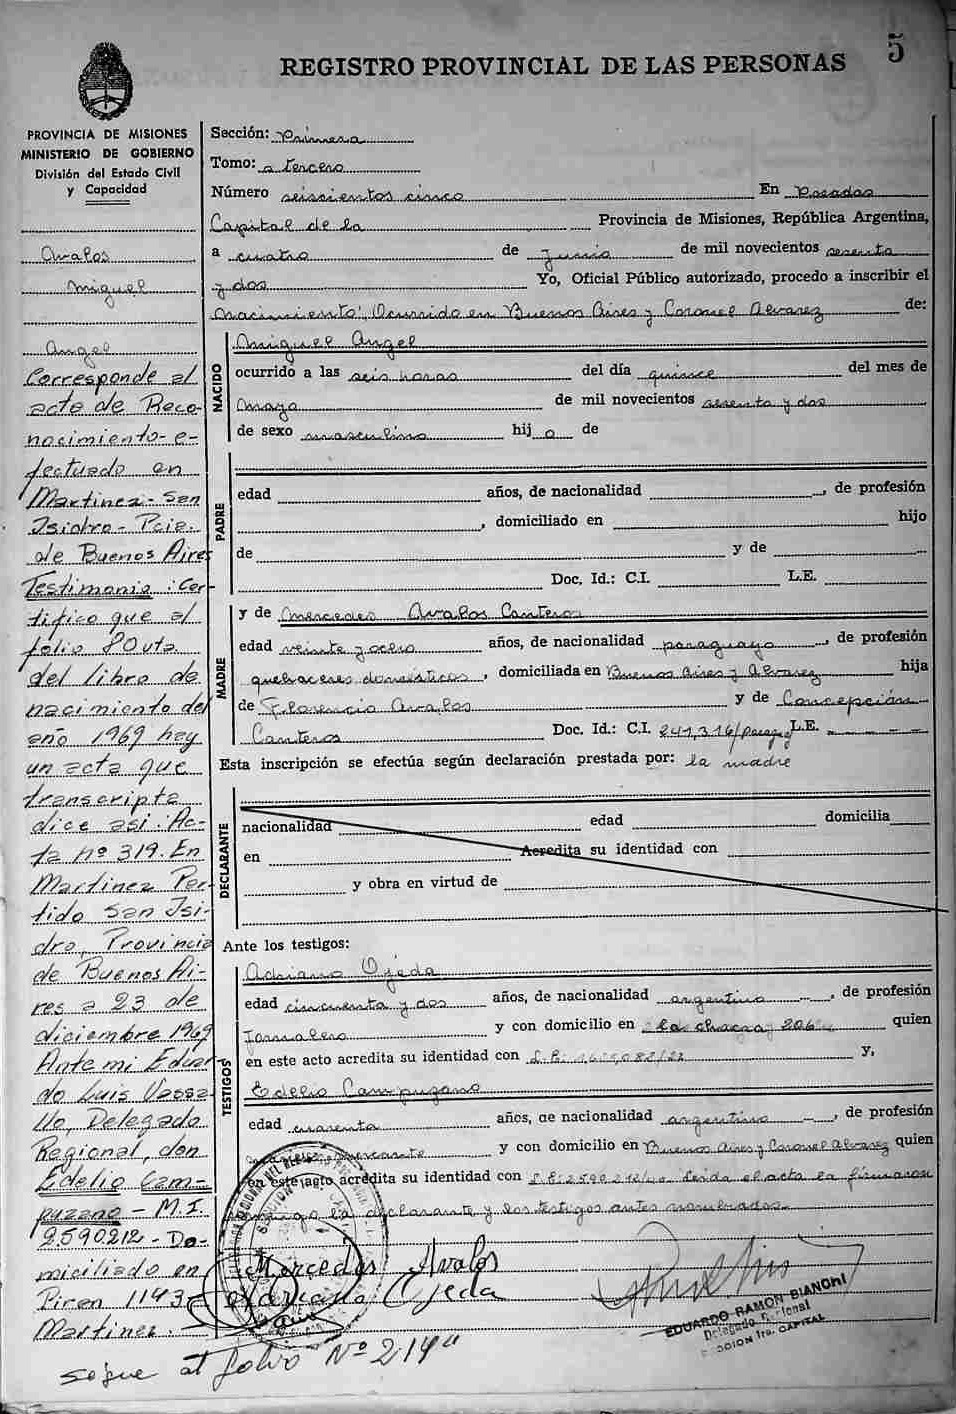 5
REGISTRO PROVINCIAL DE LAS PERSONAS
PROVINCIA DE MISIONES
MINISTERIO DE GOBIERNO
División del Estado Civil
y Capacidad
Avalos
Miguel
Angel
Corresponde al
acta de Reco-
nocimiento e-
fectuado en
Martinez - San
Isidro - Pcia.
de Buenos Aires
Testimonio: Cer-
tifico que al
folio 80 vta
del libro de
nacimiento del
año 1969 hay
un acta que
transcripta
dice asi: Ac-
ta nº 319. En
Martinez Par-
tido San Isi-
dro, Provincia
de Buenos Ai-
res a 23 de
diciembre 1969
Ante mi Eduar-
do Luis Vassa-
llo, Delegado
Regional, don
Edelio Cam-
puzano - M.I.
2590212 - Do-
miciliado en
Piran 1143
Martinez.
Sección: Primera
Tomo: a tercero
Número seiscientos cinco En Posadas
Capital de la Provincia de Misiones, República Argentina,
a cuatro de Junio de mil novecientos sesenta
y dos Yo, Oficial Público autorizado, procedo a inscribir el
nacimiento: Ocurrido en Buenos Aires y Coronel Alvarez de:
NACIDO
Miguel Angel
ocurrido a las seis horas del día quince del mes de
mayo de mil novecientos sesenta y dos
de sexo masculino hij o de
PADRE
edad años, de nacionalidad , de profesión
, domiciliado en hijo
de y de
Doc. Id.: C.I. L.E.
MADRE
y de Mercedes Avalos Canteros
edad veinte y ocho años, de nacionalidad paraguaya , de profesión
quehaceres domésticos , domiciliada en Buenos Aires y Alvarez hija
de Florencio Avalos y de Concepción
Canteros Doc. Id.: C.I. 241,316/paraguay L.E.
Esta inscripción se efectúa según declaración prestada por: la madre
DECLARANTE
nacionalidad edad domicilia
en Acredita su identidad con
y obra en virtud de
Ante los testigos:
TESTIGOS
Adriano Ojeda
edad cincuenta y dos años, de nacionalidad argentino , de profesión
Jornalero y con domicilio en la chacra 206 quien
en este acto acredita su identidad con y,
Edelio Campuzano
edad cuarenta años, de nacionalidad argentino , de profesión
y con domicilio en Buenos Aires y Coronel Alvarez quien
en este acto acredita su identidad con leida el acta la firmaron
conmigo la declarante y los testigos antes nombrados.
Mercedes Avalos
Adriano Ojeda
EDUARDO RAMON BIANCHI
Delegado Regional
SECCION 1ra. CAPITAL
sigue al folio Nº 214"